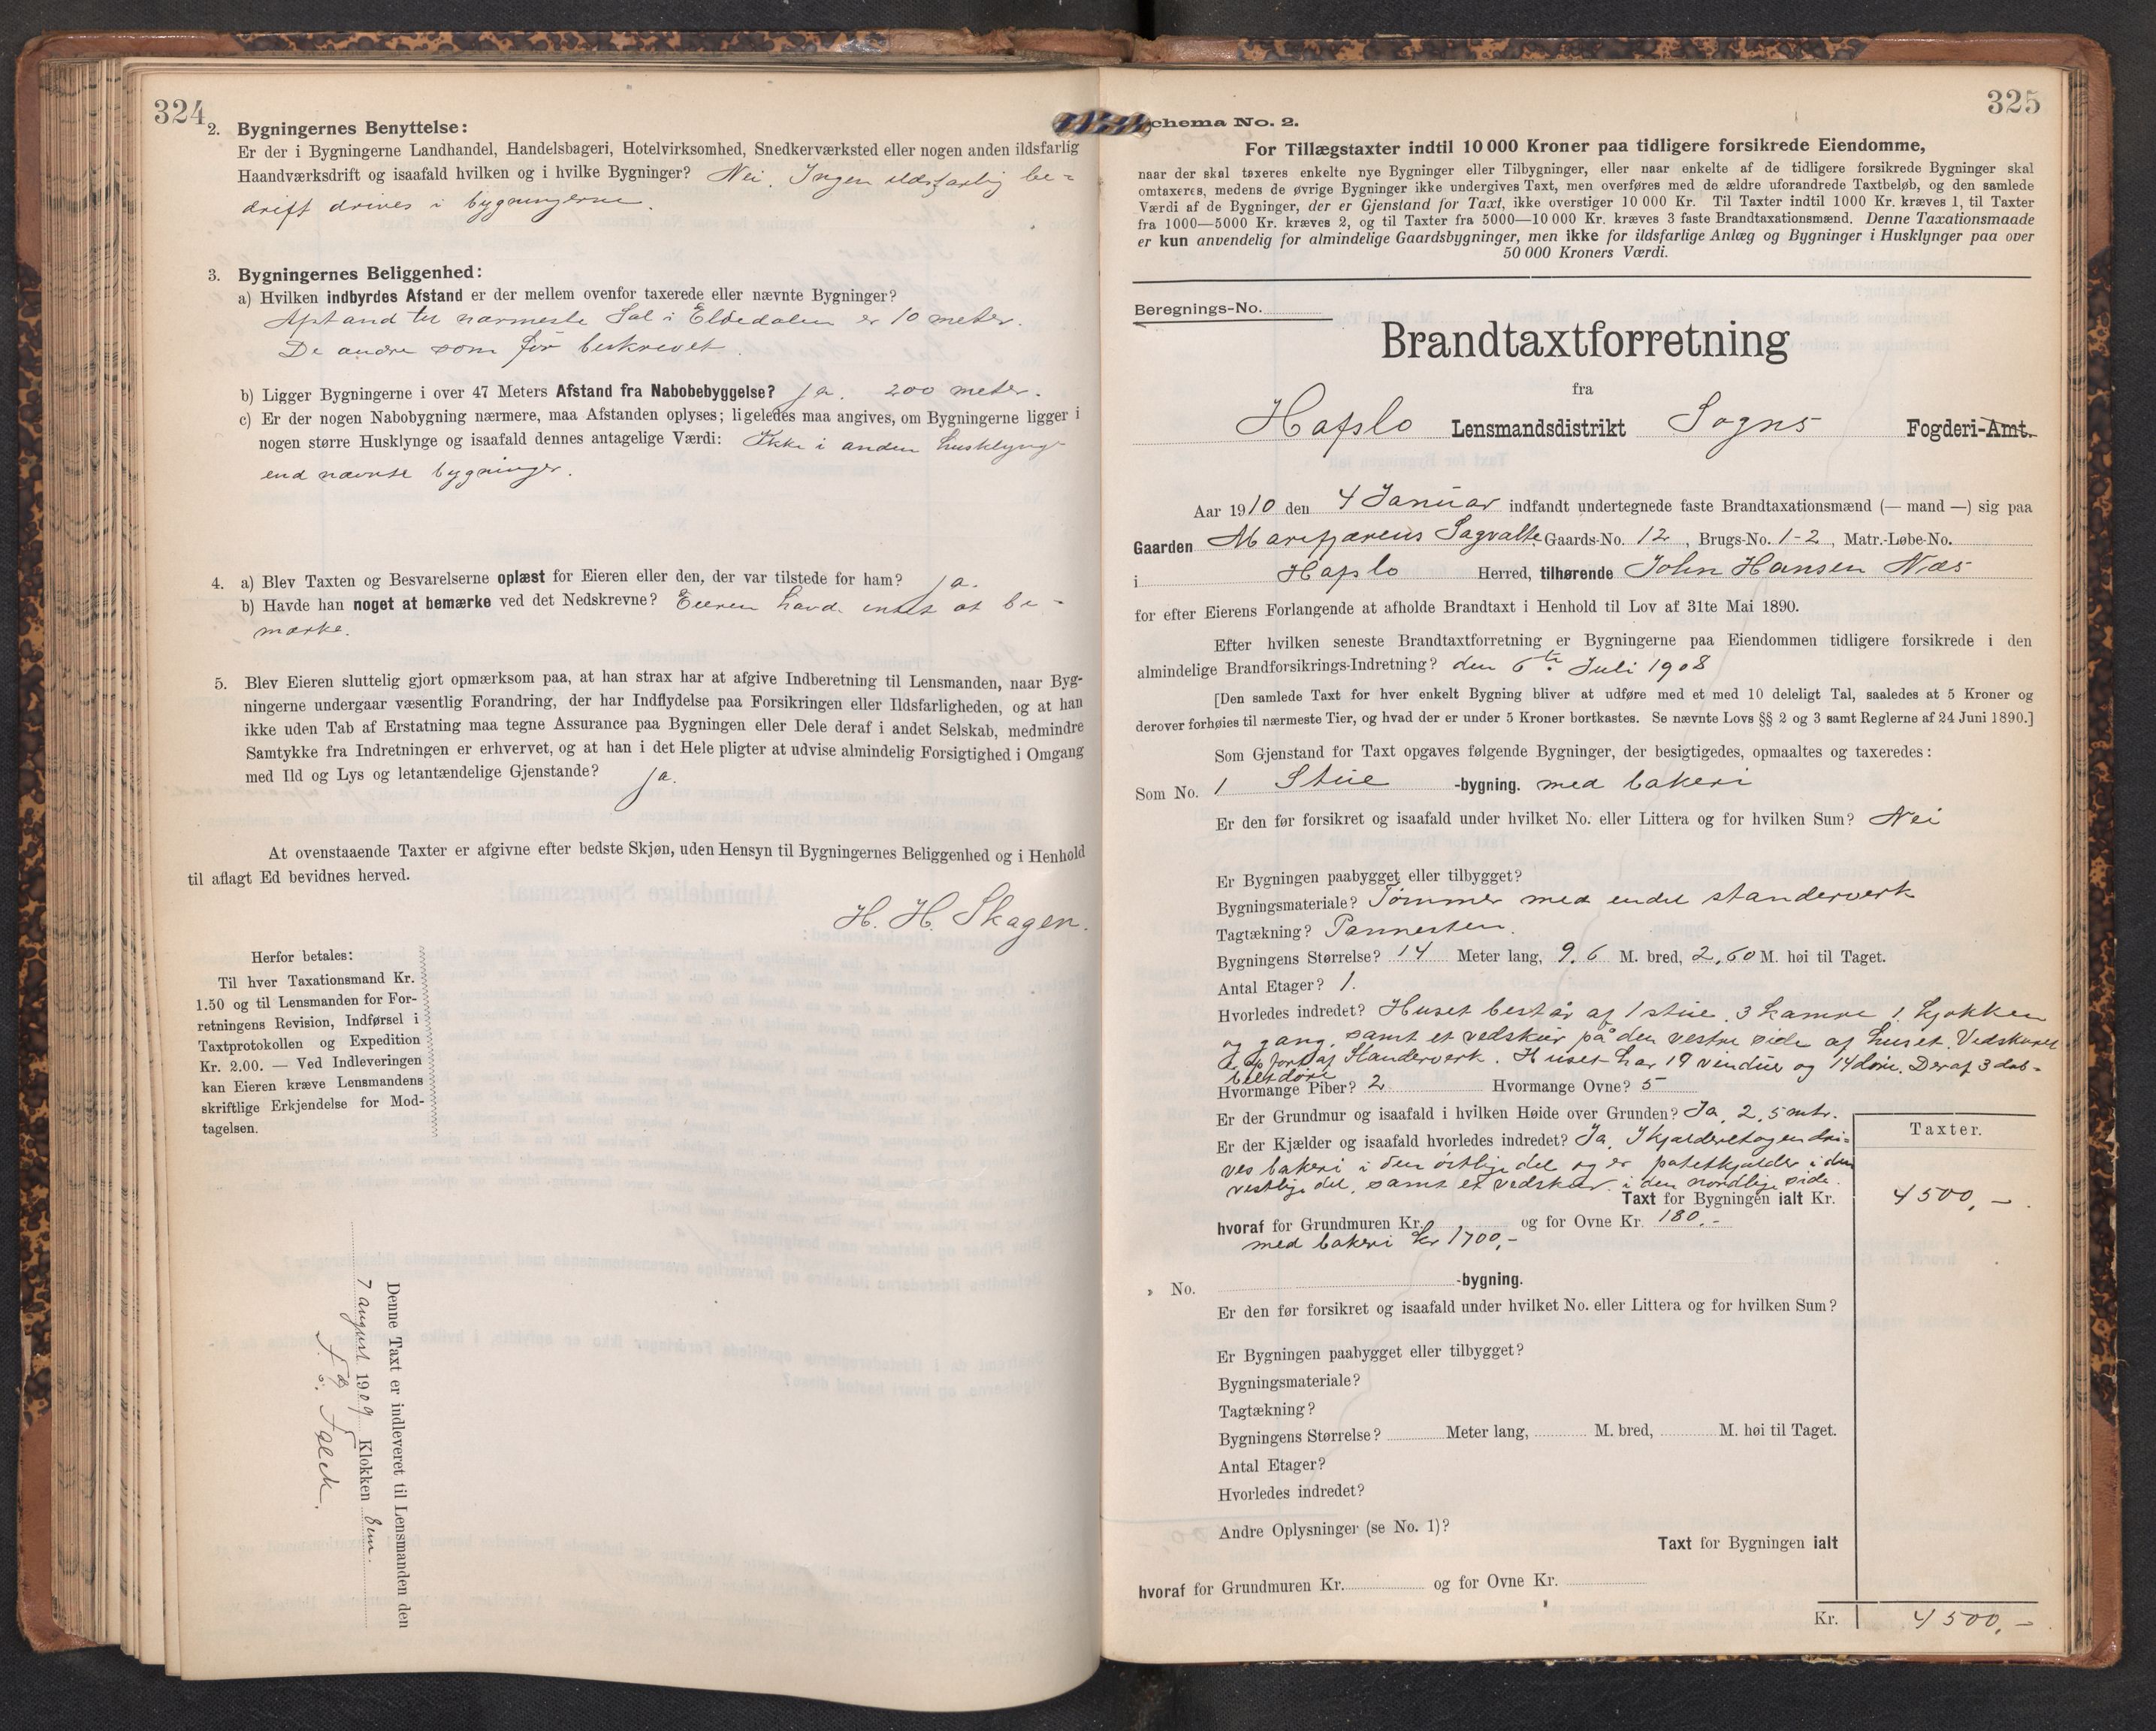 324
2. Bygningernes Benyttelse:
Er der i Bygningerne Landhandel, Handelsbageri, Hotelvirksomhed, Snedkerværksted eller nogen anden ildsfarlig
Haandværksdrift og isaafald hvilken og i hvilke Bygninger? Nei. Ingen ildsfarlig be=
drift drives i bygningerne.
3. Bygningernes Beliggenhed:
a) Hvilken indbyrdes Afstand er der mellem ovenfor taxerede eller nævnte Bygninger?
Afstand til nærmeste Sel i Eldedalen er 10 meter.
De andre som før beskrevet.
b) Ligger Bygningerne i over 47 Meters Afstand fra Nabobebyggelse? Ja. 200 meter.
c) Er der nogen Nabobygning nærmere, maa Afstanden oplyses; ligeledes maa angives, om Bygningerne ligger i
nogen større Husklynge og isaafald dennes antagelige Værdi: Ikke i anden husklynge
end nævnte bygninger.
4. a) Blev Taxten og Besvarelserne oplæst for Eieren eller den, der var tilstede for ham? Ja.
b) Havde han noget at bemærke ved det Nedskrevne? Eieren havde intet at be-
mærke.
5. Blev Eieren sluttelig gjort opmærksom paa, at han strax har at afgive Indberetning til Lensmanden, naar Byg-
ningerne undergaar væsentlig Forandring, der har Indflydelse paa Forsikringen eller Ildsfarligheden, og at han
ikke uden Tab af Erstatning maa tegne Assurance paa Bygningen eller Dele deraf i andet Selskab, medmindre
Samtykke fra Indretningen er erhvervet, og at han i det Hele pligter at udvise almindelig Forsigtighed i Omgang
med Ild og Lys og letantændelige Gjenstande? Ja.
At ovenstaaende Taxter er afgivne efter bedste Skjøn, uden Hensyn til Bygningernes Beliggenhed og i Henhold
til aflagt Ed bevidnes herved.
H. H. Skagen.
Herfor betales:
Til hver Taxationsmand Kr.
1.50 og til Lensmanden for For-
retningens Revision, Indførsel i
Taxtprotokollen og Expedition
Kr. 2.00. — Ved Indleveringen
kan Eieren kræve Lensmandens
skriftlige Erkjendelse for Mod-
tagelsen.
Denne Taxt er indleveret til Lensmanden den
7 august 1909 Klokken 8 em.
325
chema No. 2.
For Tillægstaxter indtil 10 000 Kroner paa tidligere forsikrede Eiendomme,
naar der skal taxeres enkelte nye Bygninger eller Tilbygninger, eller naar enkelte af de tidligere forsikrede Bygninger skal
omtaxeres, medens de øvrige Bygninger ikke undergives Taxt, men overføres med de ældre uforandrede Taxtbeløb, og den samlede
Værdi af de Bygninger, der er Gjenstand for Taxt, ikke overstiger 10 000 Kr. Til Taxter indtil 1000 Kr. kræves 1, til Taxter
fra 1000—5000 Kr. kræves 2, og til Taxter fra 5000—10 000 Kr. kræves 3 faste Brandtaxationsmænd. Denne Taxationsmaade
er kun anvendelig for almindelige Gaardsbygninger, men ikke for ildsfarlige Anlæg og Bygninger i Husklynger paa over
50 000 Kroners Værdi.
Beregnings-No.
Brandtaxtforretning
fra
Hafslo Lensmandsdistrikt Sogns Fogderi-Amt.
Aar 1910 den 4 Januar indfandt undertegnede faste Brandtaxationsmænd (— mand —) sig paa
Gaarden Marifjærens Sagvalte Gaards-No. 12, Brugs-No. 1-2, Matr.-Løbe-No.
i Hafslo Herred, tilhørende John Hansen Næs
for efter Eierens Forlangende at afholde Brandtaxt i Henhold til Lov af 31te Mai 1890.
Efter hvilken seneste Brandtaxtforretning er Bygningerne paa Eiendommen tidligere forsikrede i den
almindelige Brandforsikrings-Indretning? den 6te Juli 1908
[Den samlede Taxt for hver enkelt Bygning bliver at udføre med et med 10 deleligt Tal, saaledes at 5 Kroner og
derover forhøies til nærmeste Tier, og hvad der er under 5 Kroner bortkastes. Se nævnte Lovs §§ 2 og 3 samt Reglerne af 24 Juni 1890.]
Som Gjenstand for Taxt opgaves følgende Bygninger, der besigtigedes, opmaaltes og taxeredes:
Som No. 1 Stue -bygning. med bakeri
Er den før forsikret og isaafald under hvilket No. eller Littera og for hvilken Sum? Nei
Er Bygningen paabygget eller tilbygget?
Bygningsmateriale? Tømmer med endel standerverk
Tagtækning? Pannesten.
Bygningens Størrelse? 14 Meter lang, 9,6 M. bred, 2,60 M. høi til Taget.
Antal Etager? 1.
Hvorledes indredet? Huset består af 1 stue, 3 kamre 1 kjøkken
og gang, samt et vedskur på den vestre side af huset. Vedskuret
er opført af Standerverk. Huset har 19 vinduer og 14 døre. Deraf 3 dob-
beltdøre
Hvormange Piber? 2 Hvormange Ovne? 5
Er der Grundmur og isaafald i hvilken Høide over Grunden? Ja, 2,5 mtr.
Er der Kjælder og isaafald hvorledes indredet? Ja, I kjælderetagen dri=
ves bakeri i den østlige del og er potetkjælder i den
vestlige del, samt et vedskur i den nordlige side.
Taxter.
Taxt for Bygningen ialt Kr. 4500,-
hvoraf for Grundmuren Kr. og for Ovne Kr. 180,-
med bakeri kr 1700,-
» No. -bygning.
Er den før forsikret og isaafald under hvilket No. eller Littera og for hvilken Sum?
Er Bygningen paabygget eller tilbygget?
Bygningsmateriale?
Tagtækning?
Bygningens Størrelse? Meter lang, M. bred, M. høi til Taget.
Antal Etager?
Hvorledes indredet?
Andre Oplysninger (se No. 1)?
Taxt for Bygningen ialt
hvoraf for Grundmuren Kr. og for Ovne Kr.
Kr. 4500,-